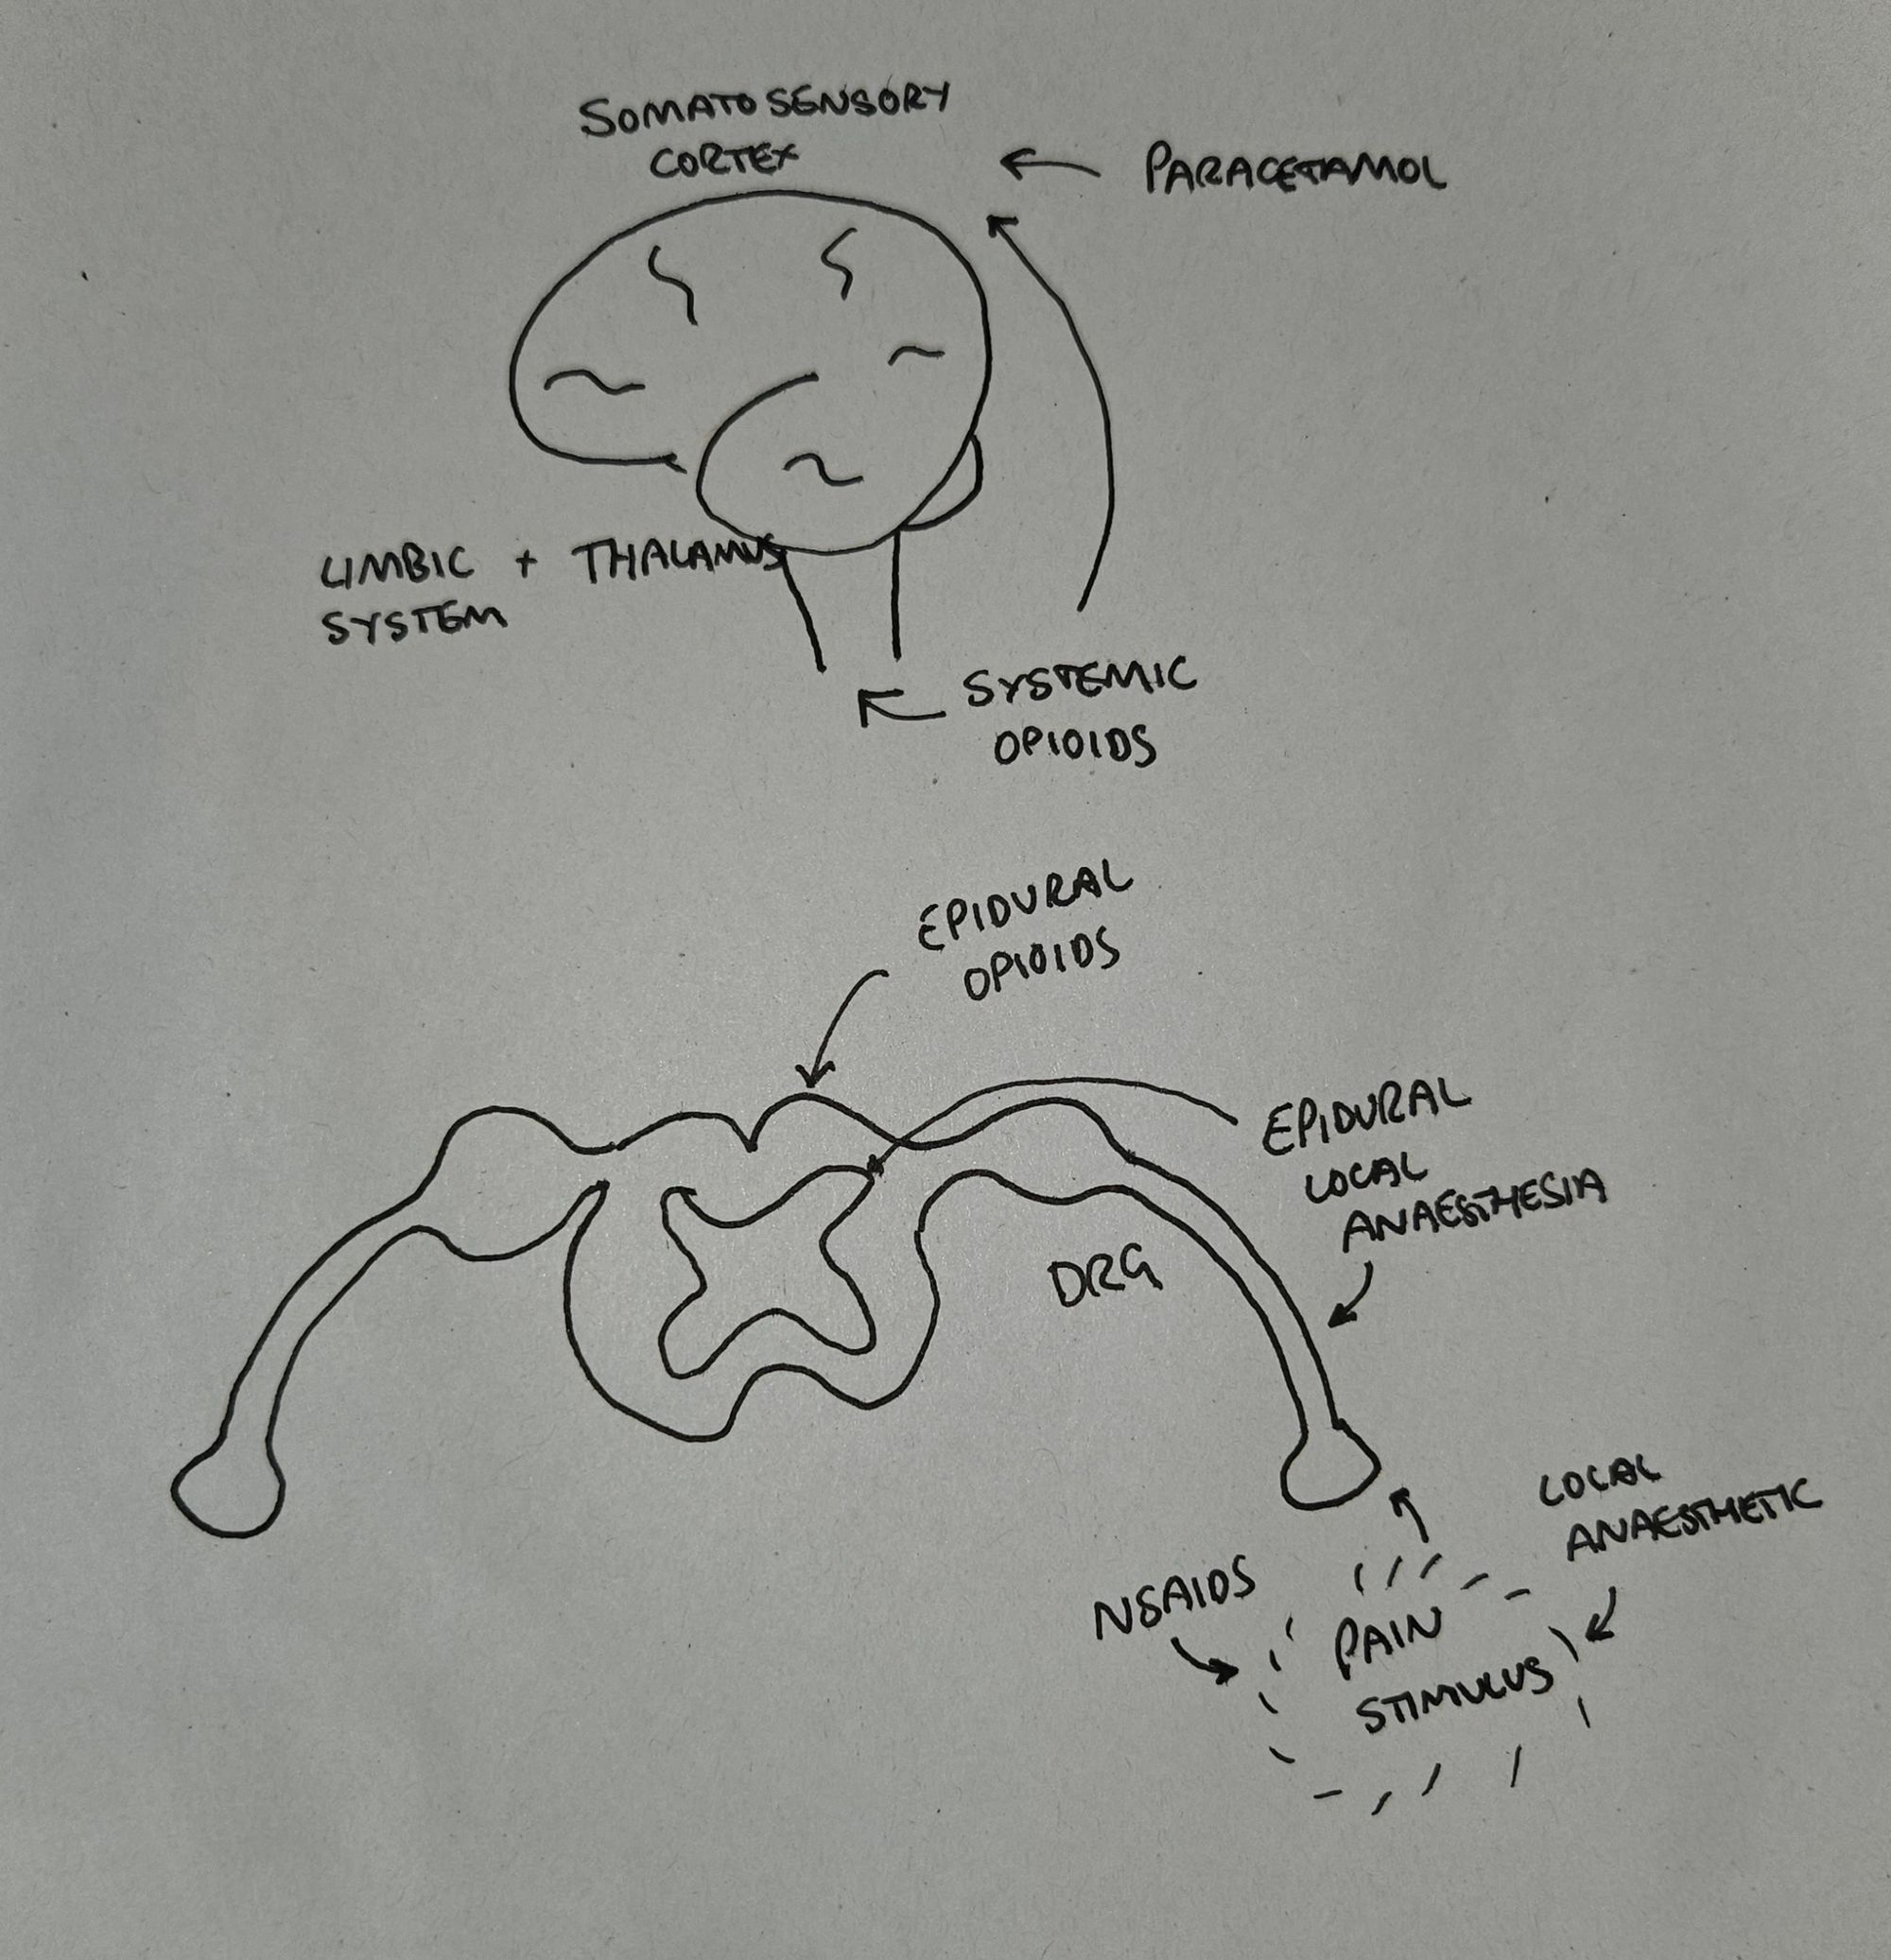 SOMATOSENSORY
CORTEX
PARACETAMOL
LIMBIC + THALAMUS
SYSTEM
SYSTEMIC
OPIOIDS
EPIDURAL
OPIOIDS
EPIDURAL
LOCAL
ANAESTHESIA
DRG
LOCAL
ANAESTHETIC
NSAIDS
PAIN
STIMULUS